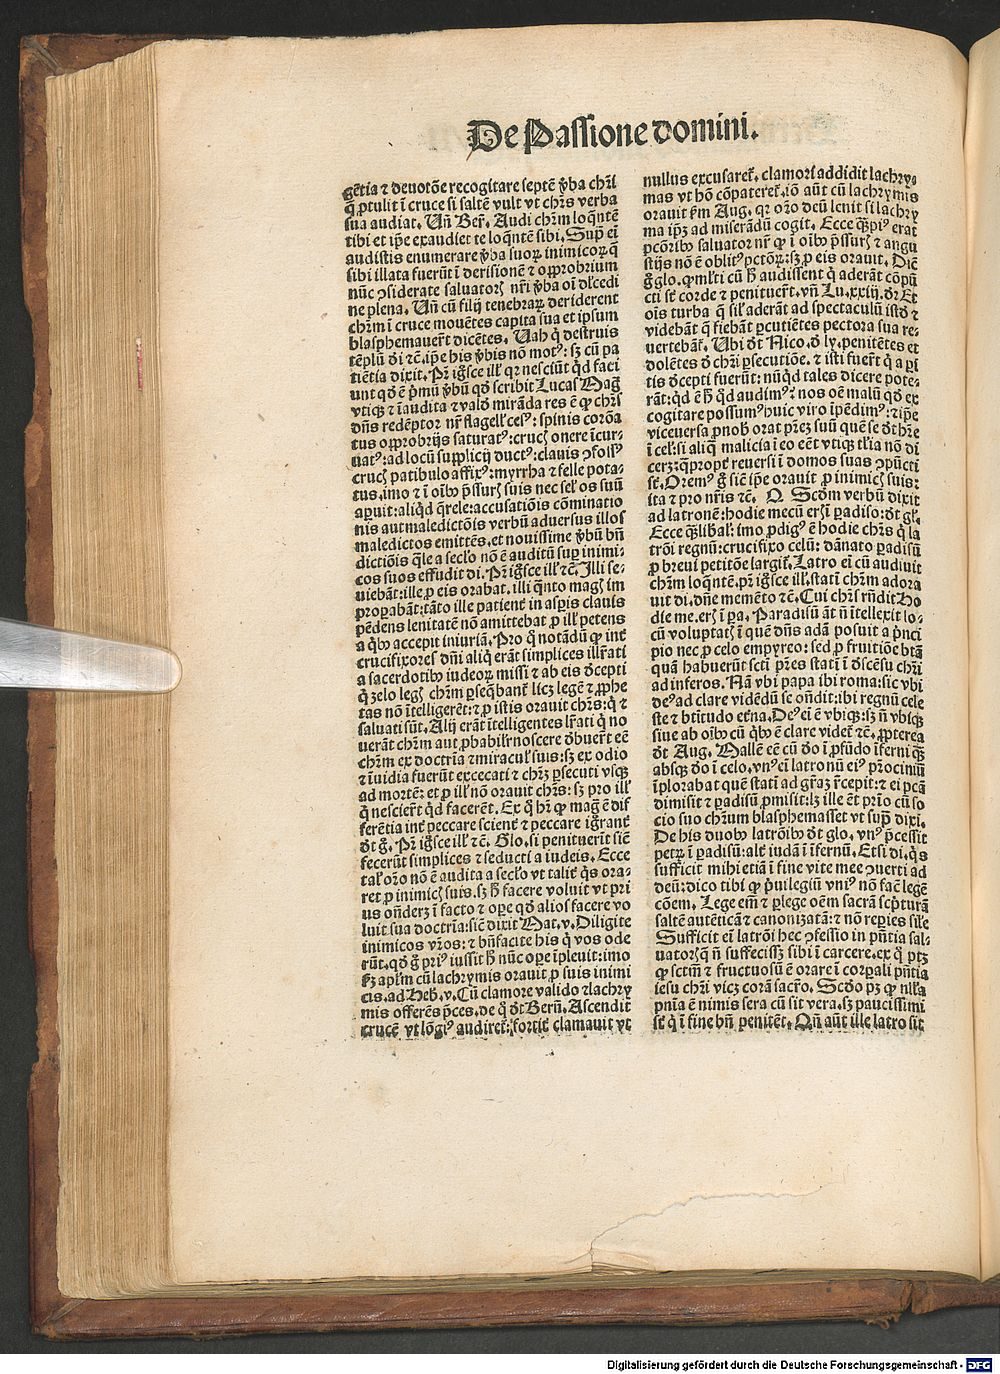 De Passione domini.
gẽtia ⁊ deuotõe recogitare septẽ v̾ba chr̃i
q̃ ꝓtulit ĩ cruce si saltẽ vult vt chr̃s verba
sua audiat. Uñ Ber̃. Audi chr̃m loq̃ntẽ
tibi et ip̃e exaudiet te loq̃ntẽ sibi. Suꝑ eĩ
audistis enumerare v̾ba suoꝝ inimicoꝝ q̃
sibi illata fuerũt ĩ derisionẽ ⁊ oꝓrobrium
nũc ꝯsiderate saluatoris nr̃i v̾ba oĩ dl̃cedi
ne plena. Uñ cũ filij tenebraꝝ deriderent
chr̃m ĩ cruce mouẽtes capita sua et ipsum
blasphemauer̃t dicẽtes. Uah q̇ destruis
tẽplũ dĩ ⁊c̃. ip̃e his v̾bis nõ motꝰ: sꝫ cũ pa
tiẽtia dixit. Pr̃ ig̃sce ill̃ qꝛ nesciũt qd̃ faci
unt qd̃ ẽ pˀmũ v̾bũ qd̃ scribit Lucas Mag̃
vtiqꝫ ⁊ ĩaudita ⁊ vald̃ mirãda res ẽ ꝙ chr̃s
dñs redẽptor nr̃ flagell̃ cesꝰ: spinis corõa
tus oꝓrobrijs saturatꝰ: crucis onere ĩcur-
uatꝰ: ad locũ supplicij ductꝰ: clauis ꝯfossꝰ
crucis patibulo affixꝰ: myrrha ⁊ felle pota-
tus, imo ⁊ ĩ oĩbꝰ p̃ssuris suis nec sel̃ os suũ
aꝑuit: aliqd̃ q̃rele: accusatiõis cõminatio
nis aut maledictõis verbũ aduersus illos
maledictos emittẽs. et nouissime v̾bũ bñ
dictiõis q̃le a sec̃lo nõ ẽ auditũ suꝑ inimi-
cos suos effudit dĩ. Pr̃ ig̃sce ill̃ ⁊c̃. Illi se-
uiebãt: ille ꝓ eis orabat. illi q̃nto magis im
proꝑabãt: tãto ille patient̃ in asꝑis clauis
pẽdens lenitatẽ nõ amittebat ꝓ ill̃ petens
a q̇bꝰ accepit iniuriã. Pro q̃ notãdũ ꝙ int̃
crucifixores dñi aliq̃ erãt simplices ill̃rati
a sacerdotibꝰ iudeoꝝ missi ⁊ ab eis d̃cepti
q̇ zelo legis chr̃m ꝑseq̃bant̃ licꝫ legẽ ⁊ ꝓphe
tas nõ ĩtelligerẽt: ⁊ ꝓ istis orauit chr̃s: q̇ ⁊
saluati sũt. Alij erãt ĩtelligentes lr̃ati q̇ no
uerãt chr̃m aut ꝓbabilr̃ noscere d̃buer̃t eẽ
chr̃m ex doctrĩa ⁊ miraculis suis: sꝫ ex odio
⁊ ĩuidia fuerũt excecati ⁊ chr̃ꝫ ꝑsecuti vsqꝫ
ad mortẽ: et ꝓ ill̃ nõ orauit chr̃s: sꝫ pro ill̃
q̇ nescier̃t qd̃ facerẽt. Ex q̃ hr̃ ꝙ mag̃ ẽ dif
ferẽtia int̃ peccare scient̃ ⁊ peccare ig̃rant̃
d̃t g̃. Pr̃ ig̃sce ill̃ ⁊c̃. Glo. si penituerit sic̃
fecerũt simplices ⁊ seducti a iudeis. Ecce
tal̃ orõ nõ ẽ audita a sec̃lo vt talit̃ q̃s ora-
ret ꝓ inimicis suis. sꝫ h̃ facere voluit vt pri
us oñderꝫ ĩ facto ⁊ oꝑe qd̃ alios facere vo
luit sua doctrĩa: sic̃ dixit Mat. v. Diligite
inimicos vr̃os: ⁊ bñfacite his q̇ vos ode
rũt. qd̃ g̃ priꝰ iussit h̃ nũc oꝑe ĩpleuit: imo
ẜꝫ apl̃m cũ lachrymis orauit ꝓ suis inimi
cis. ad Heb̃. v. Cũ clamore valido ⁊ lachry
mis offerẽs p̃ces. de q̃ d̃t Berñ. Ascendit
crucẽ vt lõgiꝰ audiret̃: fortit̃ clamauit vt
nullus excusaret̃. clamori addidit lachry-
mas vt hõ cõpateret̃. iõ aũt cũ lachrymis
orauit ẜm Aug. qꝛ orõ deũ lenit sꝫ lachry
ma ip̃ꝫ ad miserãdũ cogit. Ecce q̃ꝫpiꝰ erat
pctõribꝰ saluator nr̃ ꝙ ĩ oĩbꝰ p̃ssuris ⁊ angu
stijs nõ ẽ oblitꝰ pctõꝝ: sꝫ ꝓ eis orauit. Dic̃
g̃ glo. ꝙ ml̃ti cũ h̃ audissent q̇ aderãt cõpũ
cti st̃ corde ⁊ penituer̃t. vñ Lu. xxiij. dr̃ Et
oĩs turba q̃ sil̃ aderãt ad spectaculũ istd̃ ⁊
videbãt q̃ fiebãt ꝑcutiẽtes pectora sua re-
uertebãt̃. Ubi d̃t Nico. d̃ ly. penitẽtes et
dolẽtes d̃ chr̃i ꝑsecutiõe. ⁊ isti fuer̃t q̇ a pˀri
tis d̃cepti fuerũt: nũqd̃ tales dicere pote-
rãt: qd̃ ẽ h̃ qd̃ audimꝰ? nos oẽ malũ qd̃ ex
cogitare possumꝰ huic viro ĩpẽdimꝰ: ⁊ ip̃e
viceuersa ꝓ nobis orat pr̃eꝫ suũ quẽ se d̃t hr̃e
ĩ cel̃: si aliq̃ malicia ĩ eo eẽt vtiqꝫ tl̃ia nõ di
cerꝫ: q̃ꝓpt̃ reuersi ĩ domos suas ꝯpũcti
st̃. Oremꝰ g̃ sic̃ ip̃e orauit ꝓ inimicis suis:
ita ⁊ pro nr̃is ⁊c̃. Q. Scd̃m verbũ dixit
ad latronẽ: hodie mecũ eris ĩ padiso: d̃t gl̃.
Ecce q̃ꝫ libal̃: imo ꝓdigꝰ ẽ hodie chr̃s q̇ la
trõi regnũ: crucifixo celũ: dãnato ꝑadisũ
ꝓ breui petitõe largit̃. Latro eĩ cũ audiuit
chr̃m loq̃ntẽ. pr̃ ig̃sce ill̃. statĩ chr̃m adora
uit dĩ. dñe memẽto ⁊c̃. Cui chr̃s rñdit Ho
die me. eris ĩ ꝑa. Paradisũ aũt ñ ĩtellexit lo-
cũ voluptatis ĩ quẽ dñs adã posuit a pˀnci
pio nec ꝓ celo empyreo: sed ꝓ fruitiõe btã
quã habuerũt scti pr̃es statĩ ĩ d̃scẽsu chr̃i
ad inferos. Nã vbi papa ibi roma: sic vbi
deꝰ ad clare vidẽdũ se oñdit: ibi regnũ cele
ste ⁊ btĩtudo et̃na. Deꝰ eĩ ẽ vbiqꝫ: sꝫ ñ vbiqꝫ
siue ab oĩbꝰ cũ q̇bꝰ ẽ clare videt̃ ⁊c̃. ꝓpterea
d̃t Aug. Mallẽ eẽ cũ d̃o ĩ ꝓfũdo ĩferni q̃ꝫ
absqꝫ d̃o ĩ celo. vnꝰ eĩ latronũ eiꝰ pr̃ociniũ
ĩplorabat quẽ statĩ ad gr̃aꝫ r̃cepit: ⁊ ei pctã
dimisit ⁊ ꝑadisũ ꝓmisit: lꝫ ille ẽt pˀrio cũ so
cio suo chr̃um blasphemasset vt supˀ dixi.
De his duobꝰ latrõibꝰ d̃t glo. vnꝰ p̃cessit
petꝝ ĩ ꝑadisũ: alt̃ iudã ĩ ĩfernũ. Etsi di. q̃s
sufficit mihi etiã ĩ fine vite mee ꝯuerti ad
deũ: dico tibi ꝙ pˀuilegiũ vniꝰ nõ fac̃ legẽ
cõem. Lege em̃ ⁊ ꝑlege oẽm sacrã scpˀturã
saltẽ autẽticã ⁊ canonizatã: ⁊ nõ reꝑies sil̃e
Sufficit eĩ latrõi hec ꝯfessio in pñtia sal-
uatoris q̃ ñ suffecissꝫ sibi ĩ carcere. ex q̃ ptꝫ
ꝙ sctm̃ ⁊ fructuosũ ẽ orare ĩ corꝑali pñtia
iesu chr̃i vicꝫ corã sacr̃o. Scd̃o pꝫ ꝙ nll̃a
pñia ẽ nimis sera cũ sit vera. sꝫ paucissimi
st̃ q̇ ĩ fine bñ penitẽt. Qñ aũt ille latro sit
Digitalisierung gefördert durch die Deutsche Forschungsgemeinschaft - DFG